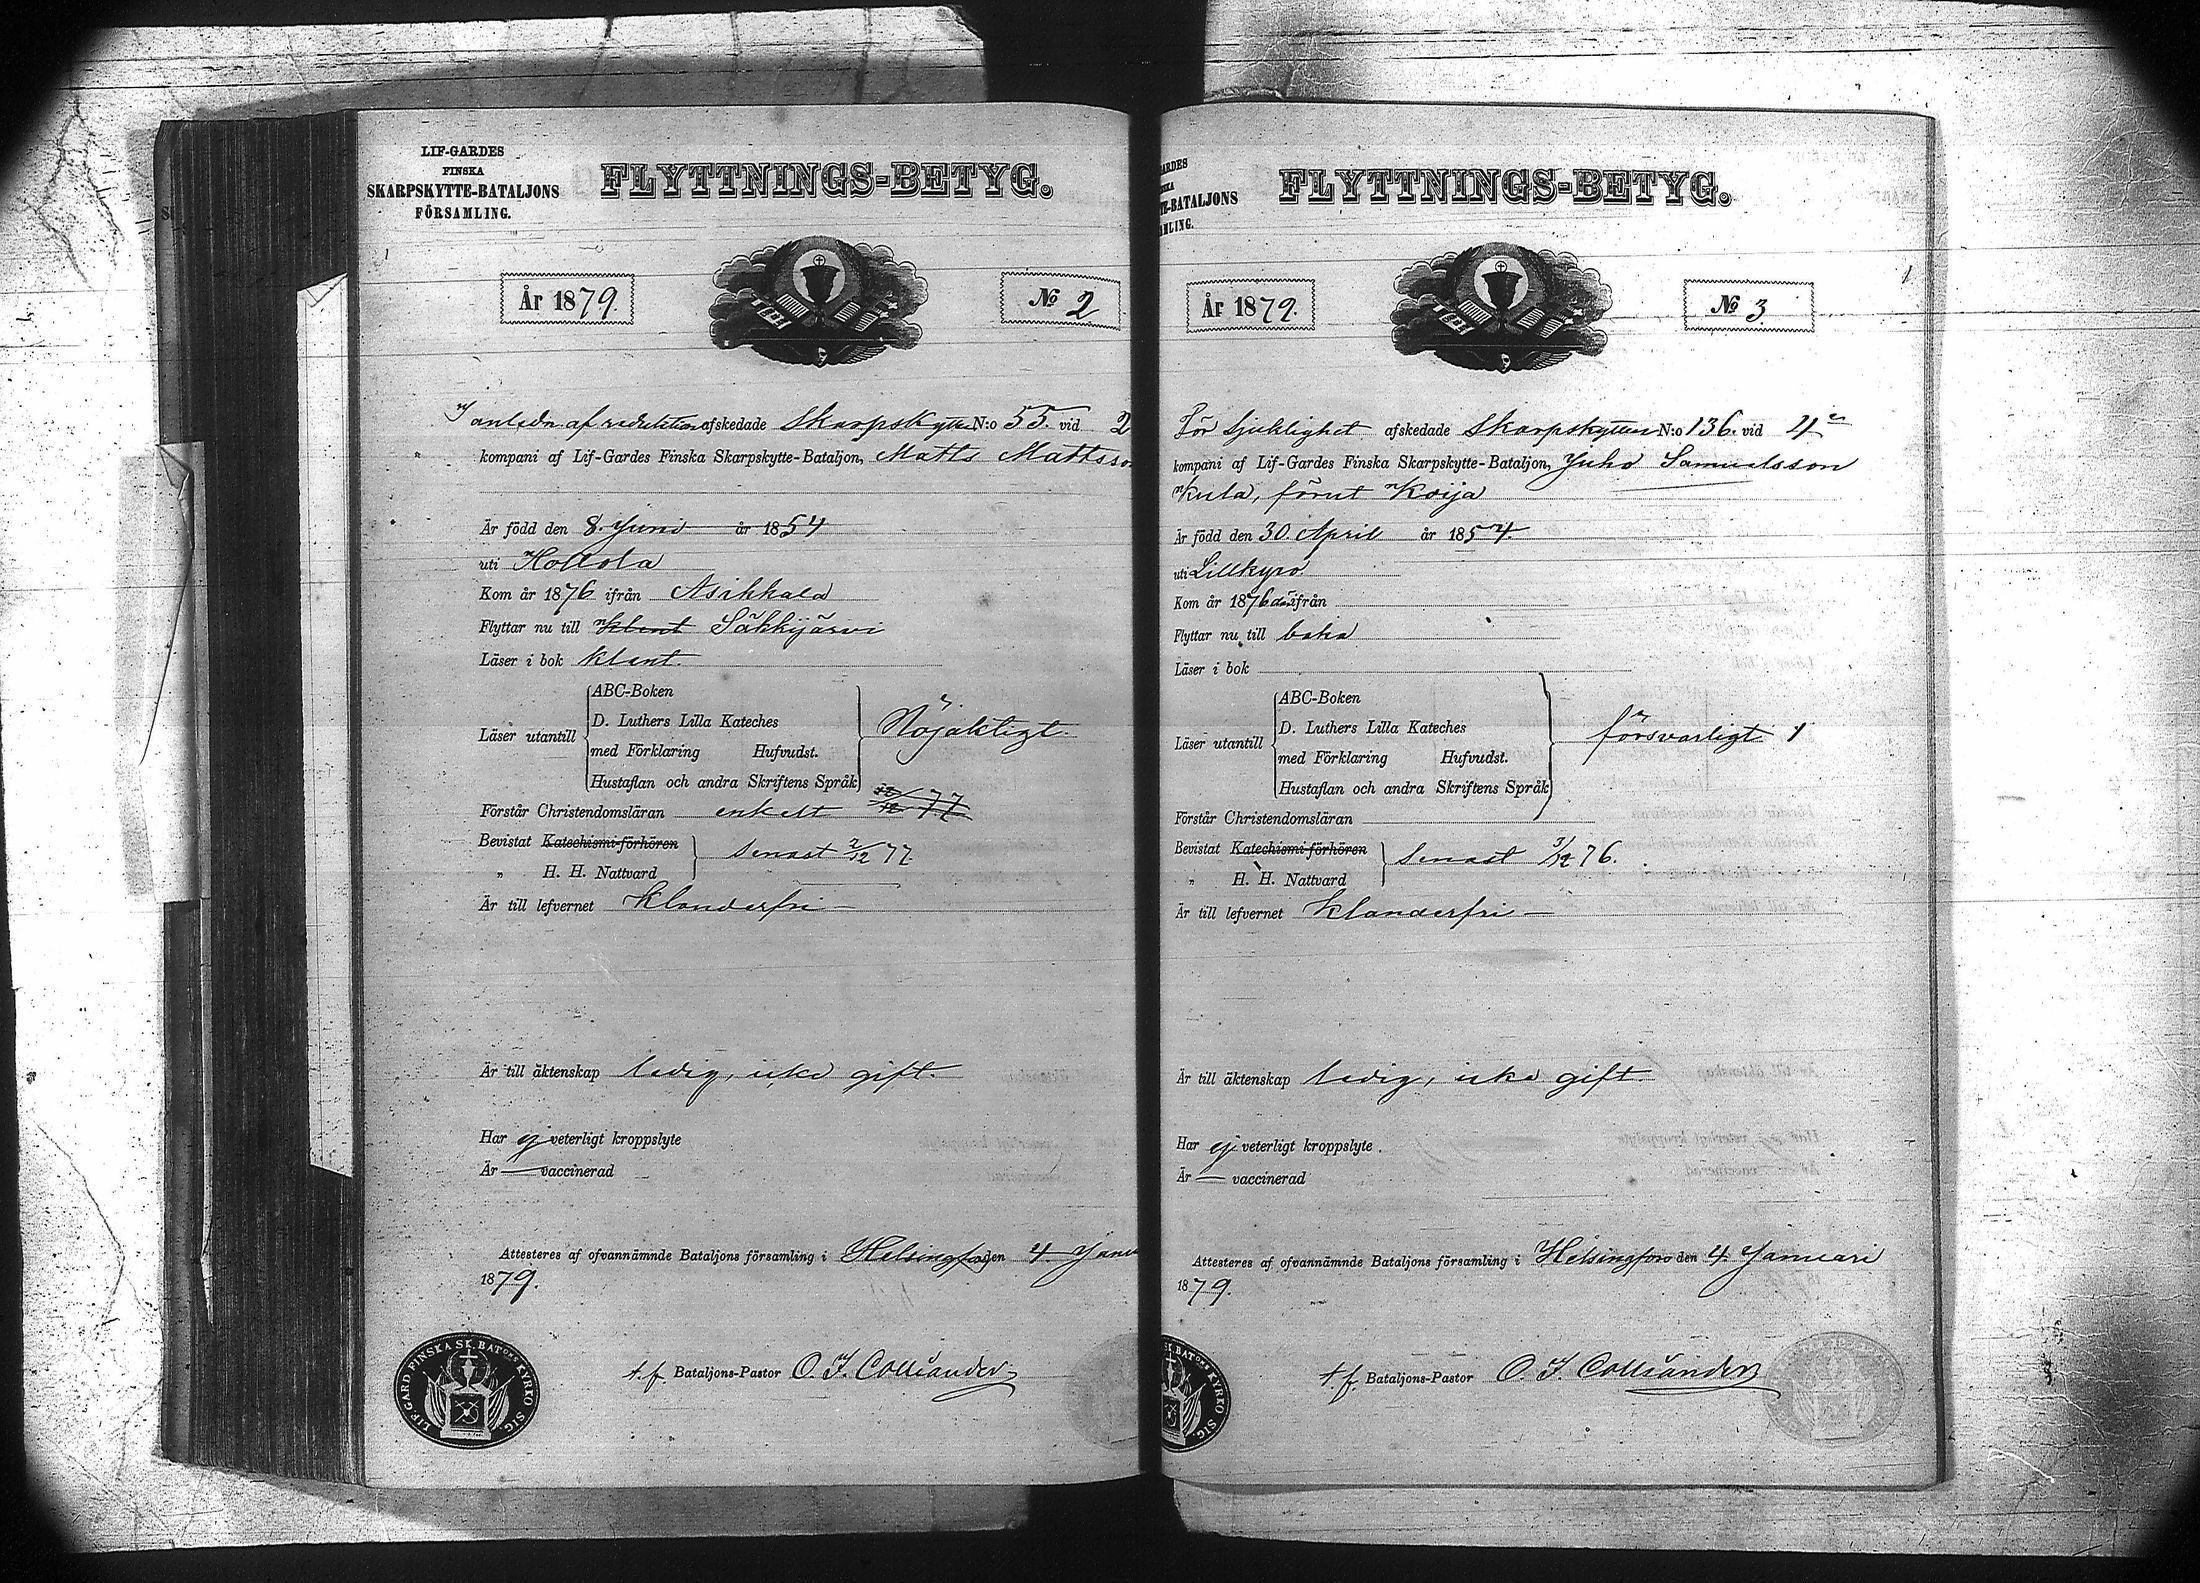 LIF-GARDES
FINSKA
SKARPSKYTTE-BATALJONS
FÖRSAMLING.
FLYTTNINGS-BETYG.
År 1879.
No 2
I anledn af reduktion afskedade Skarpskytten N:o 55. vid 2
kompani af Lif-Gardes Finska Skarpskytte-Bataljon, Matts Mattsso
Är född den 8. Juni år 1854
uti Hollola
Kom år 1876 ifrån Asikkala
Flyttar nu till klent Säkkijärvi
Läser i bok klent.
Läser utantill
ABC-Boken
D. Luthers Lilla Kateches
med Förklaring Hufvudst.
Hustaflan och andra Skriftens Språk
Nöjaktigt.
Förstår Christendomsläran enkelt 77
Bevistat Katechismi-förhören
„ H. H. Nattvard
senast 2/12 77.
Är till lefvernet klanderfri
Är till äktenskap ledig, icke gift.
Har ej veterligt kroppslyte
Är — vaccinerad
Attesteres af ofvannämnde Bataljons församling i Helsingfors den 4. Janu
1879.
LIF.GARD.FINSKA SK.BATONS KYRKO SIG.
t.f. Bataljons-Pastor O. I. Colliander
ARDES
KA
TE-BATALJONS
AMLING.
FLYTTNINGS-BETYG.
År 1879.
No 3.
För sjuklighet afskedade Skarpskytten N:o 136. vid 4e
kompani af Lif-Gardes Finska Skarpskytte-Bataljon, Juho Samuelsson
Kula, förut Koija
Är född den 30. April år 1854.
uti Lillkyro
Kom år 1876 därifrån
Flyttar nu till baka
Läser i bok
Läser utantill
ABC-Boken
D. Luthers Lilla Kateches
med Förklaring Hufvudst.
Hustaflan och andra Skriftens Språk
försvarligt
Förstår Christendomsläran
Bevistat Katechismi-förhören
„ H. H. Nattvard
senast 3/12 76.
Är till lefvernet klanderfri —
Är till äktenskap ledig, icke gift.
Har ej veterligt kroppslyte.
Är — vaccinerad
Attesteres af ofvannämnde Bataljons församling i Helsingfors den 4. Januari
1879.
SK.BATONS KYRKO SIG.
t.f. Bataljons-Pastor O. I. Colliander